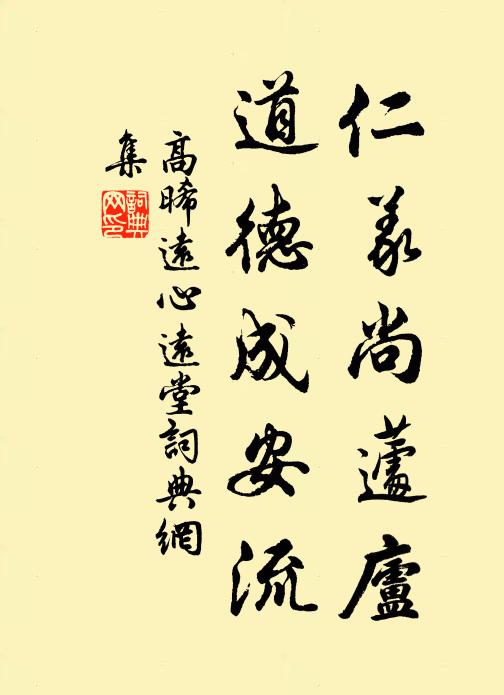 仁義尚蘧廬
道德成安流
高晞遠心遠堂詞典網
集
詞典網印